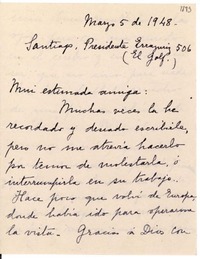 1893
Mayo 5 de 1948.
Santiago, Presidente Errazuriz 506
(El Golf.)
Mui estimada amiga:
Muchas veces la he
recordado y deseado escribirla,
pero no me atrevía hacerlo
por temor de molestarla, ó
interrumpirla en su trabajo.
Hace poco que volví de Europa,
donde había ido para operarme
la vista. Gracias á Dios con